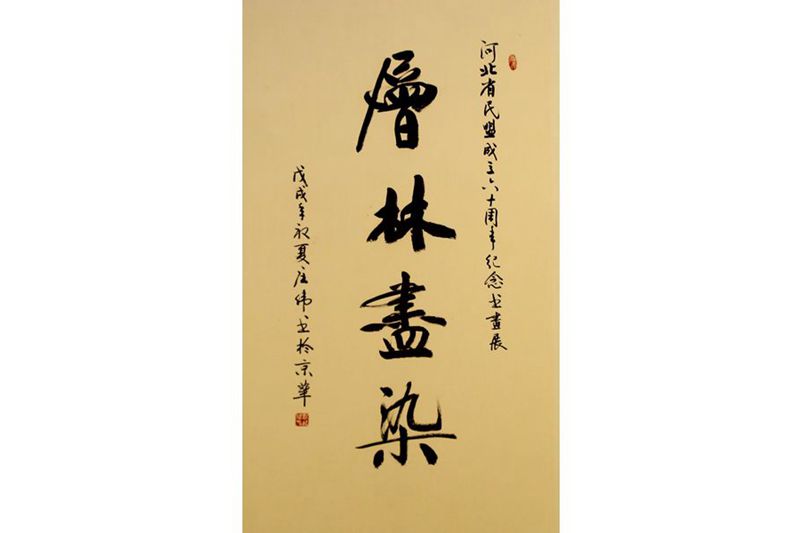 河北省民盟成立六十周年纪念书画展
層林盡染
戊戌年初夏庄伟书于京華